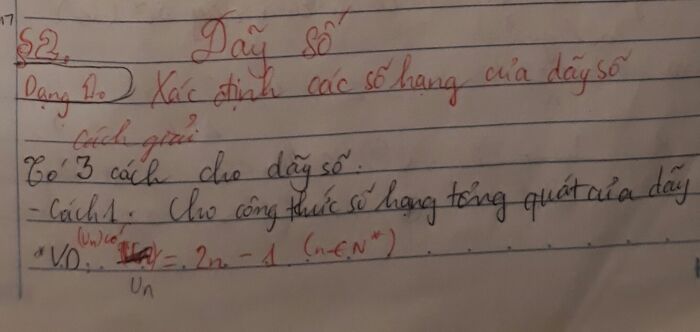 17
§2. Dãy số
Dạng 1. Xác định các số hạng của dãy số
Cách giải:
Có 3 cách cho dãy số:
- Cách 1. Cho công thức số hạng tổng quát của dãy
* VD: (Un) có Un = 2n - 1 (n ∈ N*)